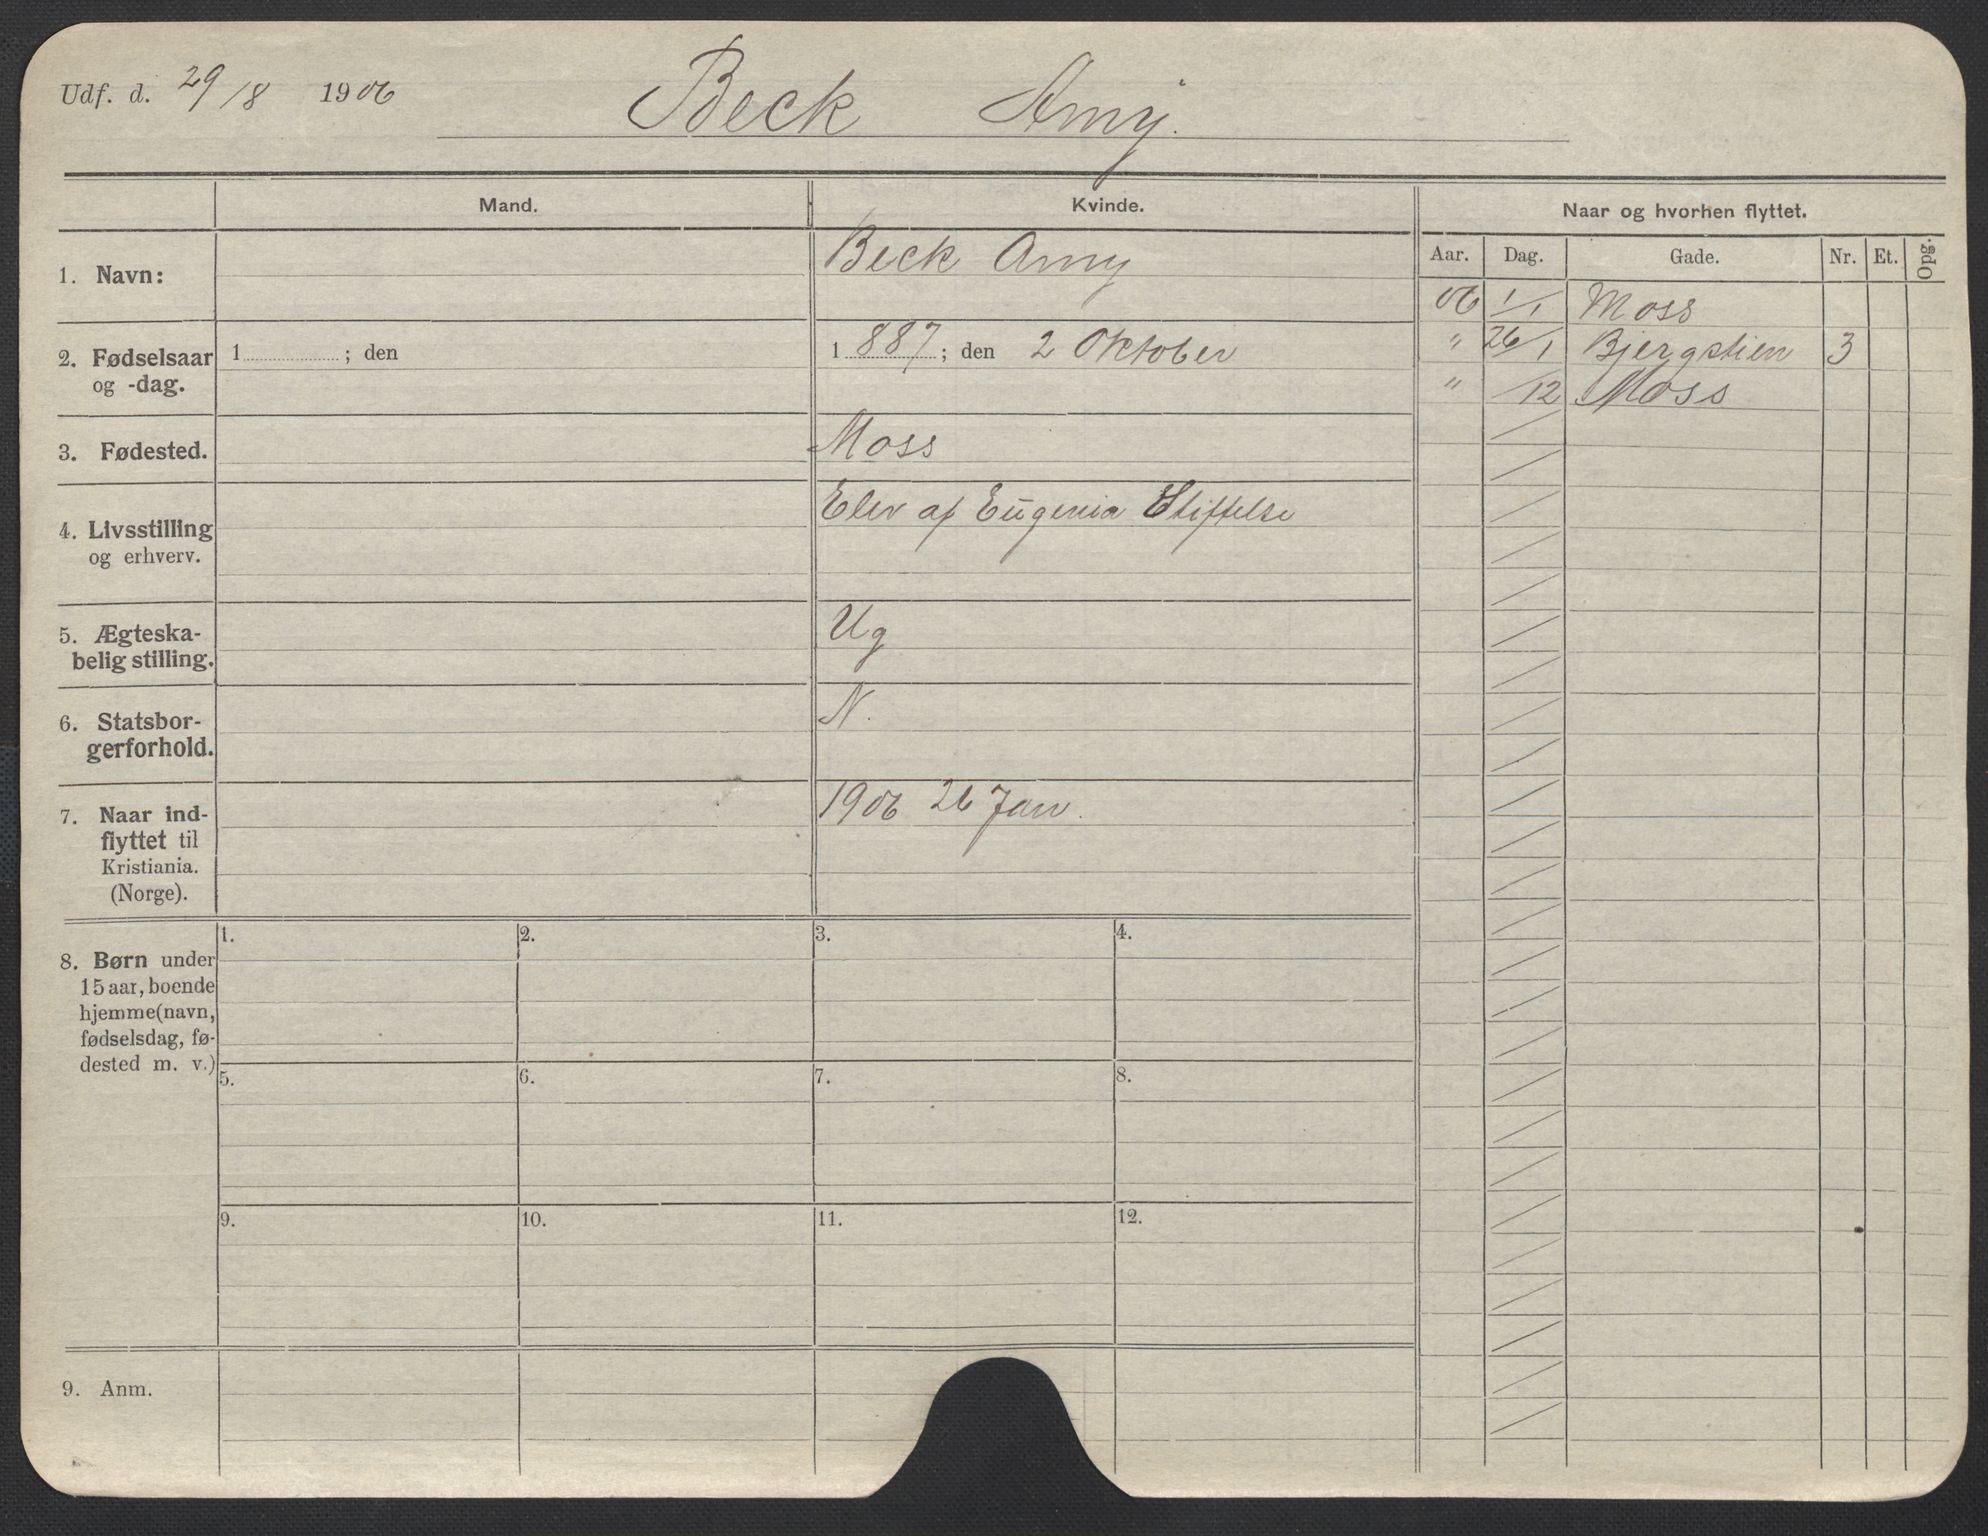 Udf. d. 29/8 1906
Beck Amy.
Mand.
Kvinde.
Naar og hvorhen flyttet.
Aar. Dag. Gade. Nr. Et. Opg.
1. Navn:
Beck Amy
2. Fødselsaar
og -dag.
1 ; den
1887; den 2 Oktober
3. Fødested.
Moss
4. Livsstilling
og erhverv.
Elev af Eugenia Stiftelse
5. Ægteska-
belig stilling.
Ug
6. Statsbor-
gerforhold.
N.
7. Naar ind-
flyttet til
Kristiania.
(Norge).
1906 26 Jan.
06 1/1 Moss
" 26/1 Bjergstien 3
" /12 Moss
8. Børn under
15 aar, boende
hjemme (navn,
fødselsdag, fø-
dested m. v.)
1. 2. 3. 4.
5. 6. 7. 8.
9. 10. 11. 12.
9. Anm.